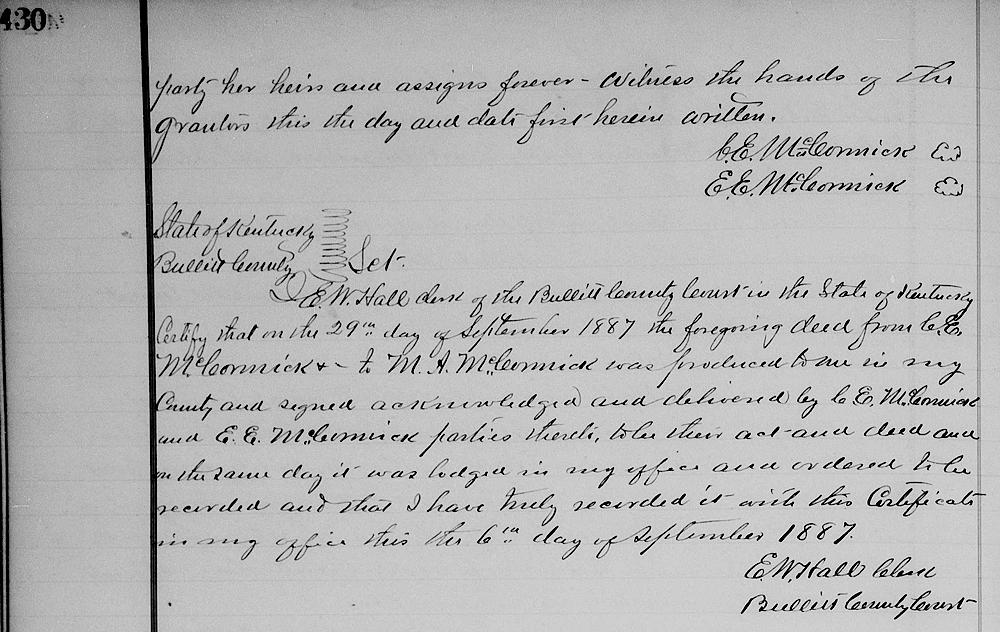 430
party her heirs and assigns forever - Witness the hands of the
grantors this the day and date first herein written.
C. E. McCormick
E. E. McCormick
State of Kentucky
Bullitt County Sct.
I E. W. Hall clerk of the Bullitt County Court in the State of Kentucky
Certify that on the 29th day of September 1887 the foregoing deed from C. E.
McCormick & - to M. A. McCormick was produced to me in my
County and signed acknowledged and delivered by C. E. McCormick
and E. E. McCormick parties thereto, to be their act and deed and
on the same day it was lodged in my office and ordered to be
recorded and that I have truly recorded it with this Certificate
in my office this the 6th day of September 1887.
E. W. Hall Clerk
Bullitt County Court